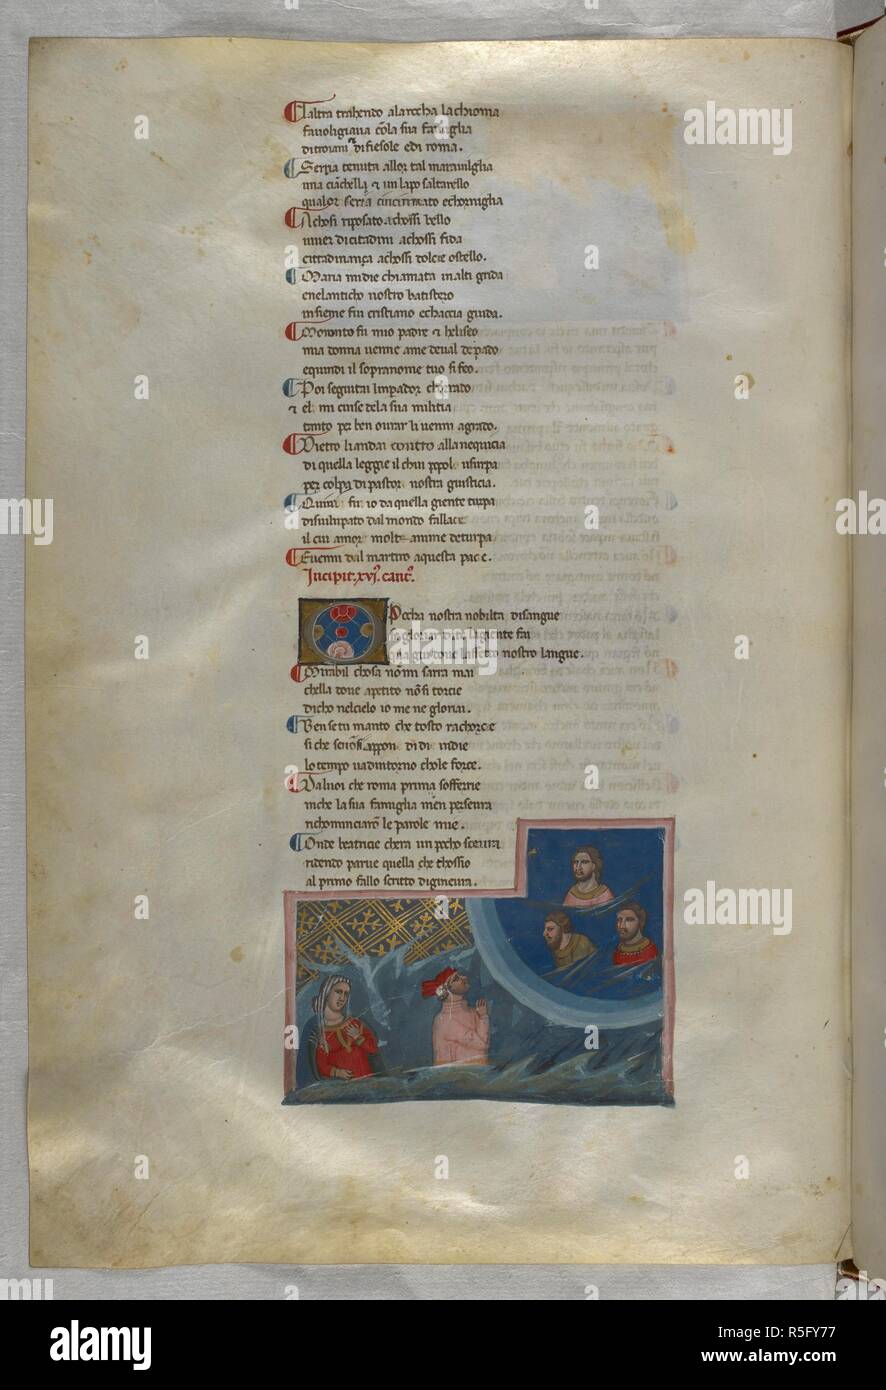 laltra trahendo alarocha lachioma
favoligiava cola sua famiglia
ditroiani di fiesole edi roma.
Seria tenuta allor tal maraviglia
una cianchella et un lapo saltarello
qual or seria cincinnato echorniglia
Achosi riposato achossi bello
viver dicitadini achossi fida
cittadinanza achossi dolcie ostello.
Maria midie chiamata inalti grida
enelanticho nostro batisteo
insieme fui cristiano echaccia guida.
Moronto fu mio padre et heliseo
mia donna venne ame deval depado
equindi il sopranome tuo si feo.
Poi seguitai limperador chorrado
et el mi cinse dela sua militia
tanto per ben ovrar li venni agrado.
Dietro liandai contro alla nequicia
di quella leggie il chui popolo usurpa
per colpa di pastor nostra giusticia.
Quivi fu io da quella giente turpa
disviluppato dal mondo fallace
il cui amor molte anime deturpa
Evenni dal martiro aquesta pace.
Incipit .xvj. cant.
Pocha nostra nobilta disangue
se gloriar di te la giente fai
qua giu dove laffetto nostro langue.
Mirabil chosa non mi sarra mai
chella dove apetito non si torcie
dicho nelcielo io me ne gloriai.
Ben se tu manto che tosto rachorcie
si che se non sappon di di indie
lo tempo va dintorno chole force.
Dal voi che roma prima sofferrie
inche la sua famiglia men persevra
richominciaro le parole mie.
Onde beatricie chera un pocho scevra
ridendo parve quella che tossio
al primo fallo scritto diginevra.
alamy
Image ID: R5FY77
www.alamy.com